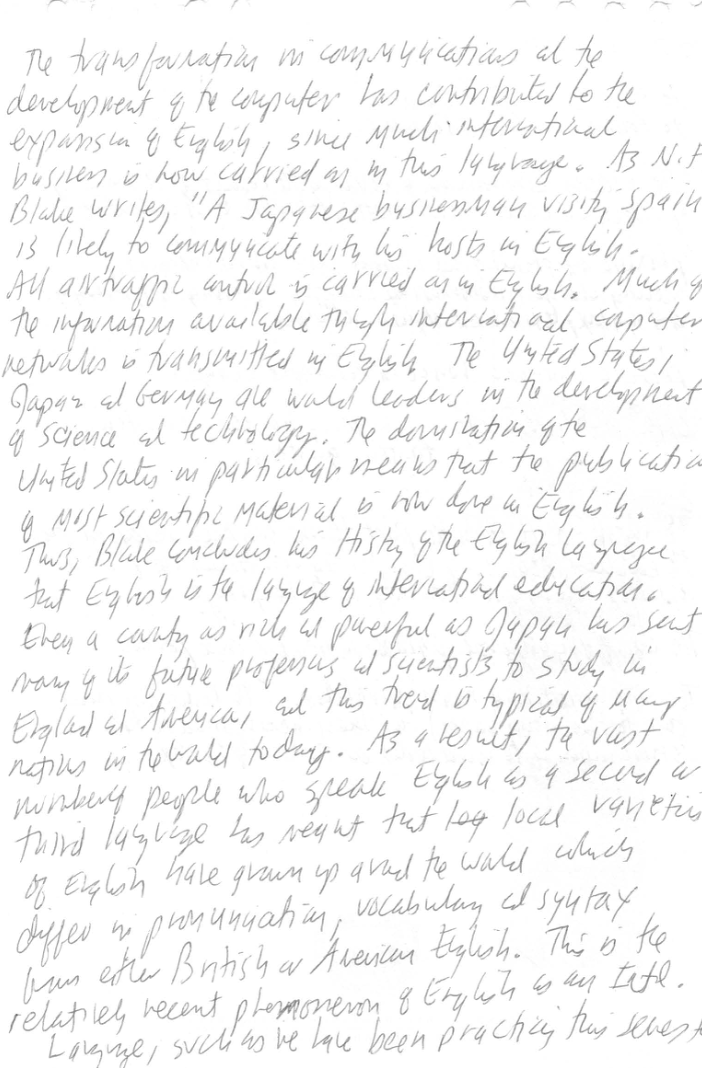 The transformation in communications and the
development of the computer has contributed to the
expansion of English, since much international
business is now carried on in this language. As N.F
Blake writes, "A Japanese businessman visiting Spain
is likely to communicate with his hosts in English.
All air traffic control is carried on in English. Much of
the information available through international computer
networks is transmitted in English. The United States,
Japan and Germany are world leaders in the development
of science and technology. The domination of the
United States in particular means that the publication
of most scientific material is now done in English.
Thus, Blake concludes his History of the English Language
that English is the language of international education.
Even a country as rich and powerful as Japan has sent
many of its future professors and scientists to study in
England and America, and this trend is typical of many
nations in the world today. As a result, the vast
number of people who speak English as a second or
third language has meant that local varieties
of English have grown up around the world which
differ in pronunciation, vocabulary and syntax
from either British or American English. This is the
relatively recent phenomoneron of English as an Intl.
Language, such as we have been practicing this semest